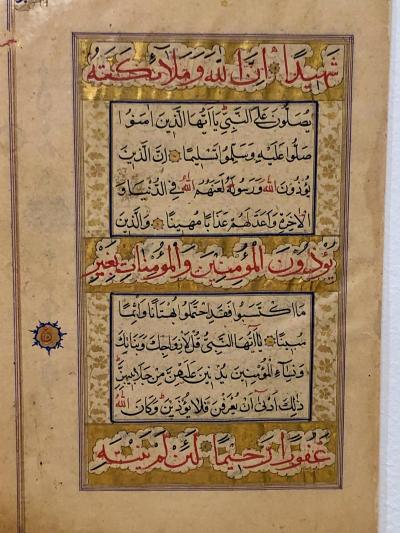 شَهِيدًا إِنَّ اللَّهَ وَمَلَائِكَتَهُ
يُصَلُّونَ عَلَى النَّبِيِّ يَا أَيُّهَا الَّذِينَ آمَنُوا
صَلُّوا عَلَيْهِ وَسَلِّمُوا تَسْلِيمًا إِنَّ الَّذِينَ
يُؤْذُونَ اللَّهَ وَرَسُولَهُ لَعَنَهُمُ اللَّهُ فِي الدُّنْيَا وَ
الْآخِرَةِ وَأَعَدَّ لَهُمْ عَذَابًا مُهِينًا وَالَّذِينَ
يُؤْذُونَ الْمُؤْمِنِينَ وَالْمُؤْمِنَاتِ بِغَيْرِ
مَا اكْتَسَبُوا فَقَدِ احْتَمَلُوا بُهْتَانًا وَإِثْمًا
مُبِينًا يَا أَيُّهَا النَّبِيُّ قُلْ لِأَزْوَاجِكَ وَبَنَاتِكَ
وَنِسَاءِ الْمُؤْمِنِينَ يُدْنِينَ عَلَيْهِنَّ مِنْ جَلَابِيبِهِنَّ
ذَلِكَ أَدْنَى أَنْ يُعْرَفْنَ فَلَا يُؤْذَيْنَ وَكَانَ اللَّهُ
غَفُورًا رَحِيمًا لَئِنْ لَمْ يَنْتَهِ